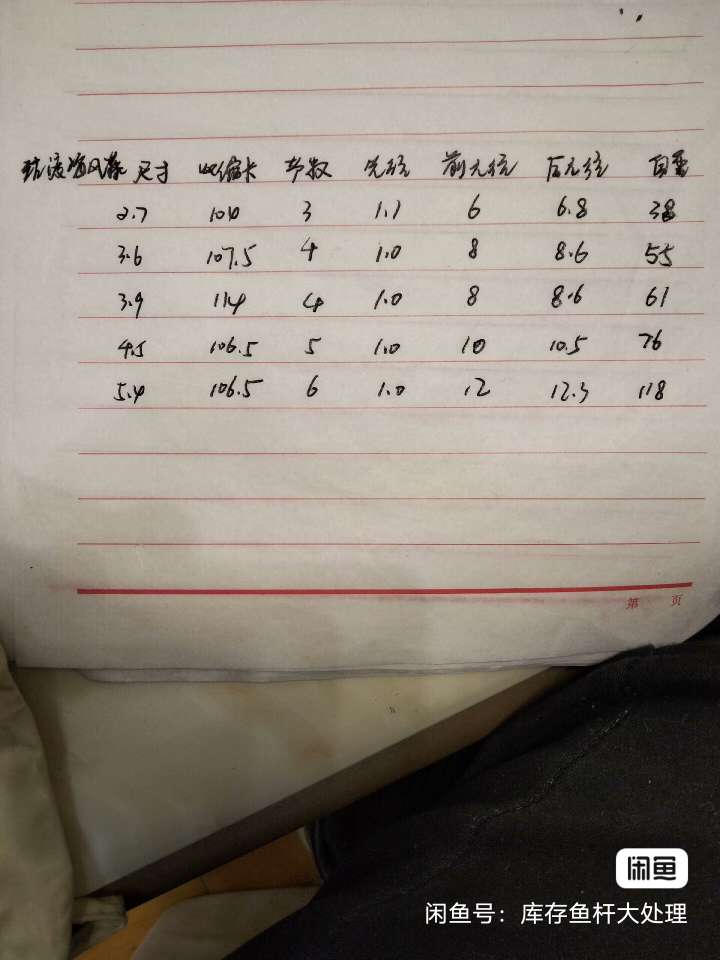 尺寸 收缩长 节数 先径 前元径 后元径 自重
2.7 104 3 1.1 6 6.8 38
3.6 107.5 4 1.0 8 8.6 55
3.9 114 4 1.0 8 8.6 61
4.5 106.5 5 1.0 10 10.5 76
5.4 106.5 6 1.0 12 12.3 118
第 页
闲鱼
闲鱼号：库存鱼杆大处理